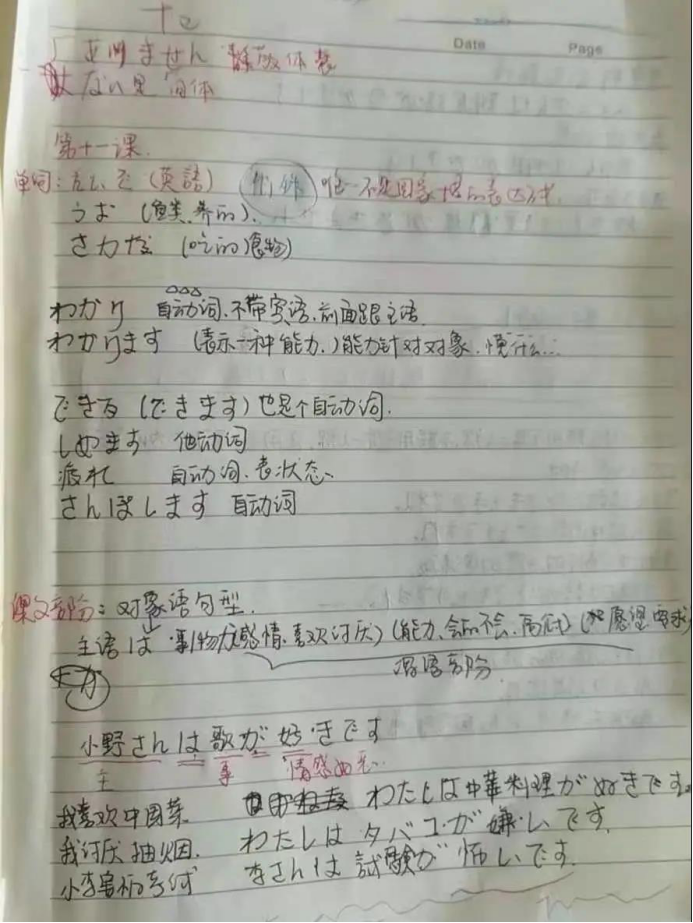 Date Page
ません
ない 简体
第十一课
单词: (英語) 例外 唯一不是国家 的表达方式
うお (鱼类、养的)、
さかな (吃的食物)
わかり 自动词、不带宾语、前面跟主语
わかります (表示一种能力、)能力针对对象、懂什么...
できる (できます) 也是个自动词.
しめます 他动词
疲れ 自动词、表状态、
さんぽします 自动词
课文部分: 对象语句型.
主语は 事/物が(感情、喜欢讨厌) (能力、会不会、 ) ( 愿望要求)
谓语部分
が
小野さんは歌が好きです
主 事 情感
我喜欢中国菜 わたしは中華料理が好きです。
我讨厌抽烟. わたしはタバコが嫌いです.
小李害怕考试 李さんは試験が怖いです.